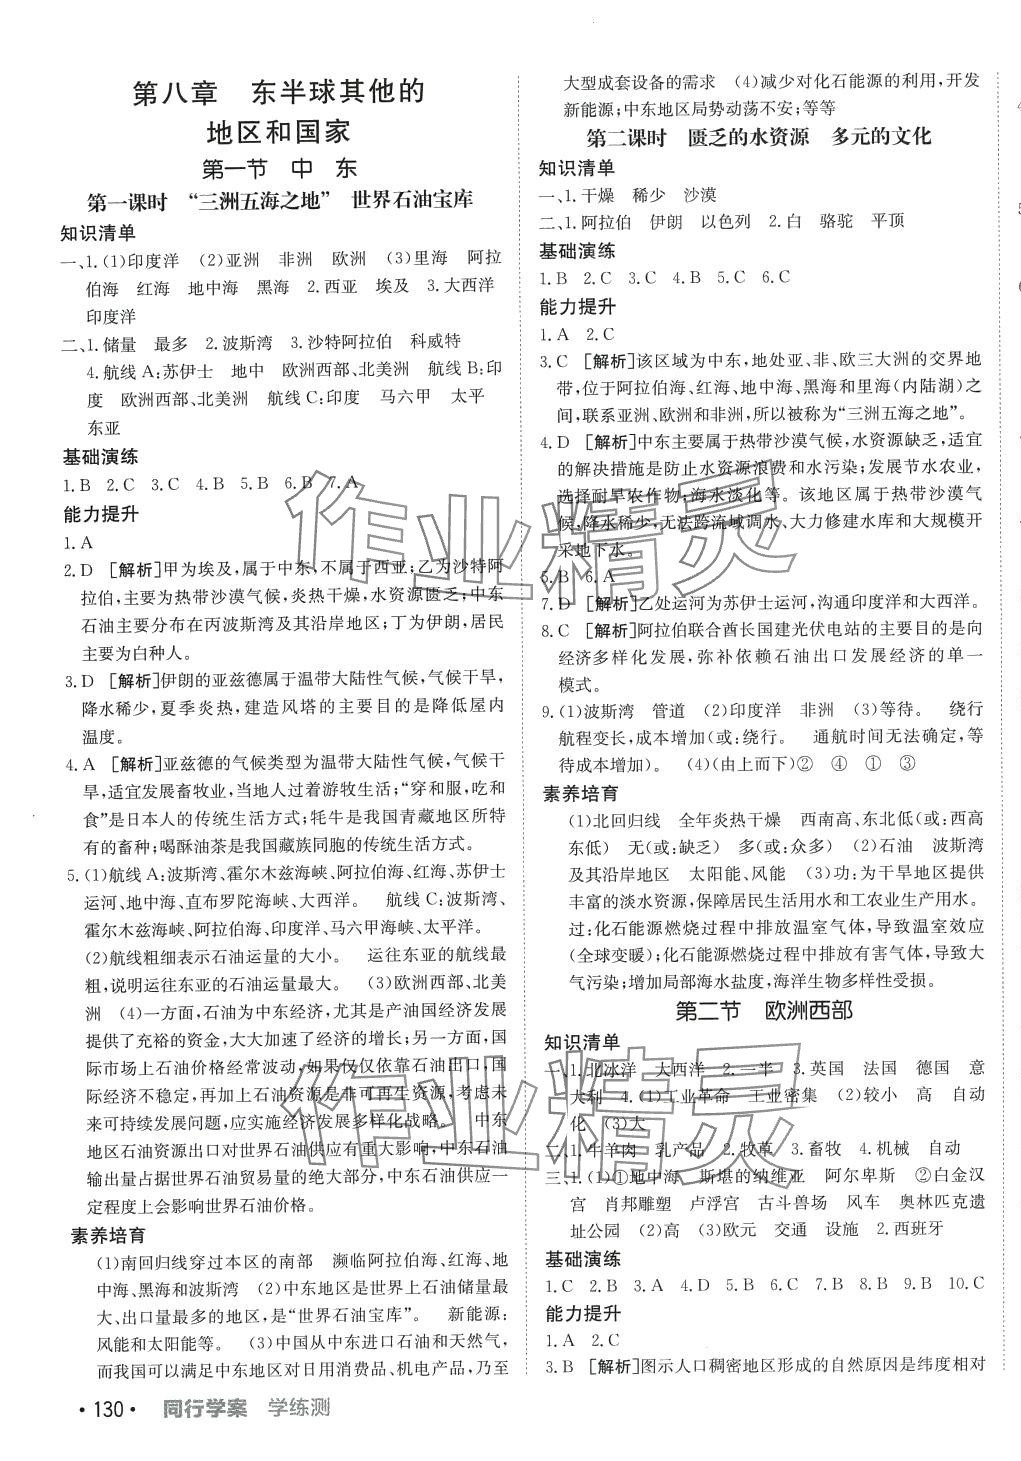 第八章　东半球其他的
地区和国家
第一节　中　东
第一课时　“三洲五海之地”　世界石油宝库
知识清单
一、1.(1)印度洋　(2)亚洲　非洲　欧洲　(3)里海　阿拉
伯海　红海　地中海　黑海　2.西亚　埃及　3.大西洋
印度洋
二、1.储量　最多　2.波斯湾　3.沙特阿拉伯　科威特
4.航线A:苏伊士　地中　欧洲西部、北美洲　航线B:印
度　欧洲西部、北美洲　航线C:印度　马六甲　太平
东亚
基础演练
1.B　2.C　3.C　4.B　5.B　6.B　7.A
能力提升
1.A
2.D　[解析]甲为埃及,属于中东,不属于西亚;乙为沙特阿
拉伯,主要为热带沙漠气候,炎热干燥,水资源匮乏;中东
石油主要分布在丙波斯湾及其沿岸地区;丁为伊朗,居民
主要为白种人。
3.D　[解析]伊朗的亚兹德属于温带大陆性气候,气候干旱,
降水稀少,夏季炎热,建造风塔的主要目的是降低屋内
温度。
4.A　[解析]亚兹德的气候类型为温带大陆性气候,气候干
旱,适宜发展畜牧业,当地人过着游牧生活;“穿和服,吃和
食”是日本人的传统生活方式;牦牛是我国青藏地区所特
有的畜种;喝酥油茶是我国藏族同胞的传统生活方式。
5.(1)航线A:波斯湾、霍尔木兹海峡、阿拉伯海、红海、苏伊士
运河、地中海、直布罗陀海峡、大西洋。　航线C:波斯湾、
霍尔木兹海峡、阿拉伯海、印度洋、马六甲海峡、太平洋。
(2)航线粗细表示石油运量的大小。　运往东亚的航线最
粗,说明运往东亚的石油运量最大。　(3)欧洲西部、北美
洲　(4)一方面,石油为中东经济,尤其是产油国经济发展
提供了充裕的资金,大大加速了经济的增长;另一方面,国
际市场上石油价格经常波动,如果仅仅依靠石油出口,国
际经济不稳定,再加上石油资源是非可再生资源,考虑未
来可持续发展问题,应实施经济发展多样化战略。　中东
地区石油资源出口对世界石油供应有重大影响,中东石油
输出量占据世界石油贸易量的绝大部分,中东石油供应一
定程度上会影响世界石油价格。
素养培育
(1)南回归线穿过本区的南部　濒临阿拉伯海、红海、地
中海、黑海和波斯湾　(2)中东地区是世界上石油储量最
大、出口量最多的地区,是“世界石油宝库”。　新能源:
风能和太阳能等。　(3)中国从中东进口石油和天然气,
而我国可以满足中东地区对日用消费品、机电产品,乃至
· 130 ·　同行学案　学练测
大型成套设备的需求　(4)减少对化石能源的利用,开发
新能源;中东地区局势动荡不安;等等
第二课时　匮乏的水资源　多元的文化
知识清单
一、1.干燥　稀少　沙漠
二、1.阿拉伯　伊朗　以色列　2.白　骆驼　平顶
基础演练
1.B　2.C　3.C　4.B　5.C　6.C
能力提升
1.A　2.C
3.C　[解析]该区域为中东,地处亚、非、欧三大洲的交界地
带,位于阿拉伯海、红海、地中海、黑海和里海(内陆湖)之
间,联系亚洲、欧洲和非洲,所以被称为“三洲五海之地”。
4.D　[解析]中东主要属于热带沙漠气候,水资源缺乏,适宜
的解决措施是防止水资源浪费和水污染;发展节水农业,
选择耐旱农作物;海水淡化等。该地区属于热带沙漠气
候,降水稀少,无法跨流域调水、大力修建水库和大规模开
采地下水。
5.B　6.A
7.D　[解析]乙处运河为苏伊士运河,沟通印度洋和大西洋。
8.C　[解析]阿拉伯联合酋长国建光伏电站的主要目的是向
经济多样化发展,弥补依赖石油出口发展经济的单一
模式。
9.(1)波斯湾　管道　(2)印度洋　非洲　(3)等待。　绕行
航程变长,成本增加(或:绕行。　通航时间无法确定,等
待成本增加)。　(4)(由上而下)②　④　①　③
素养培育
(1)北回归线　全年炎热干燥　西南高、东北低(或:西高
东低)　无(或:缺乏)　多(或:众多)　(2)石油　波斯湾
及其沿岸地区　太阳能、风能　(3)功:为干旱地区提供
丰富的淡水资源,保障居民生活用水和工农业生产用水。
过:化石能源燃烧过程中排放温室气体,导致温室效应
(全球变暖);化石能源燃烧过程中排放有害气体,导致大
气污染;增加局部海水盐度,海洋生物多样性受损。
第二节　欧洲西部
知识清单
一、1.北冰洋　大西洋　2.一半　3.英国　法国　德国　意
大利　4.(1)工业革命　工业密集　(2)较小　高　自动
化　(3)大
二、1.牛羊肉　乳产品　2.牧草　3.畜牧　4.机械　自动
三、1.(1)①地中海　斯堪的纳维亚　阿尔卑斯　②白金汉
宫　肖邦雕塑　卢浮宫　古斗兽场　风车　奥林匹克遗
址公园　(2)高　(3)欧元　交通　设施　2.西班牙
基础演练
1.C　2.B　3.A　4.D　5.B　6.C　7.B　8.B　9.B　10.C
能力提升
1.A　2.C
3.B　[解析]图示人口稠密地区形成的自然原因是纬度相对
作业精灵
作业精灵